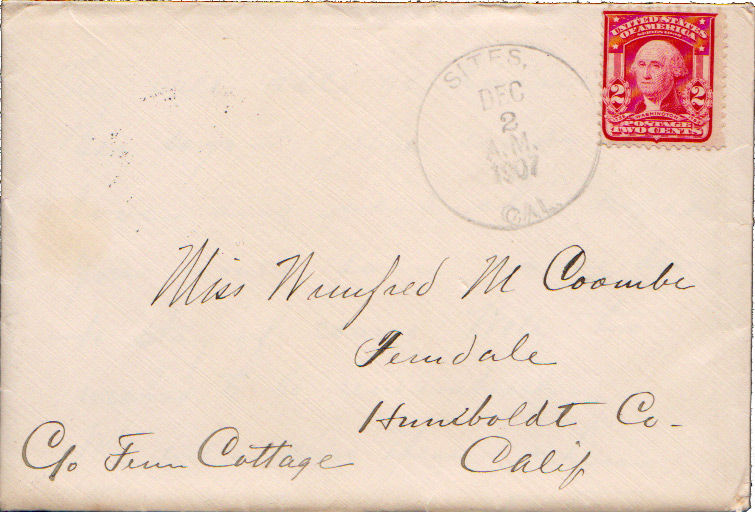 SITES,
DEC
2
A.M.
1907
CAL.
UNITED STATES
OF AMERICA
2 2
WASHINGTON
POSTAGE
TWO CENTS
Miss Winifred M Coombe
Ferndale
Humboldt Co-
Calif
C/o Fern Cottage